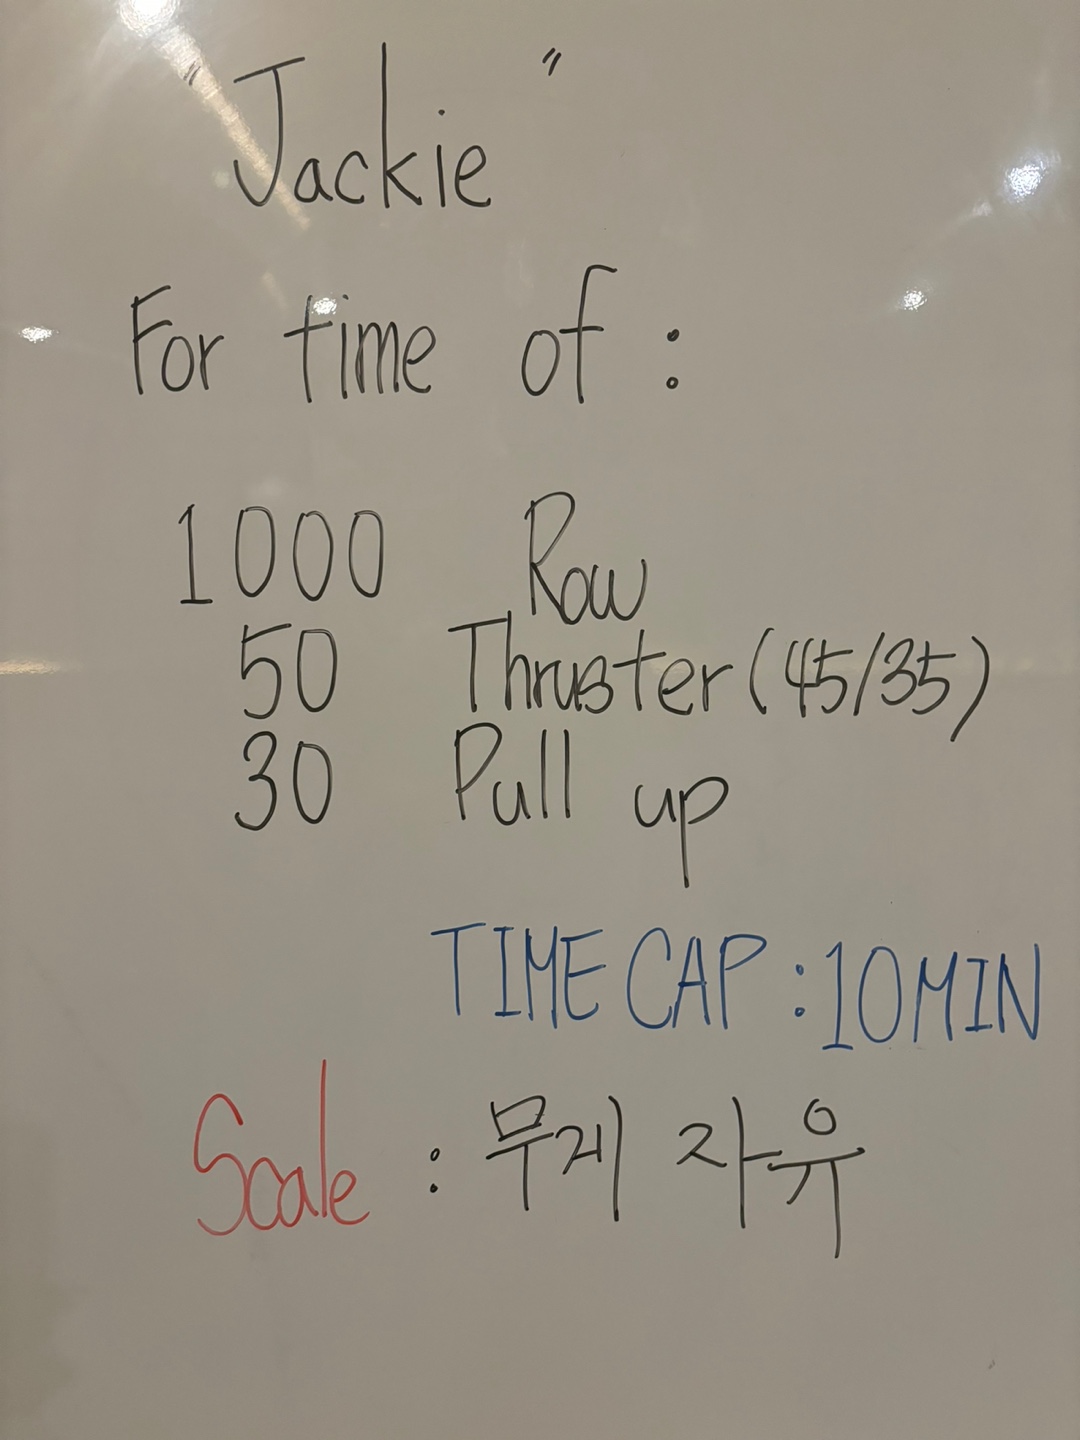 "Jackie"
For time of :
1000 Row
50 Thruster (45/35)
30 Pull up
TIME CAP : 10MIN
Scale : 무게 자유